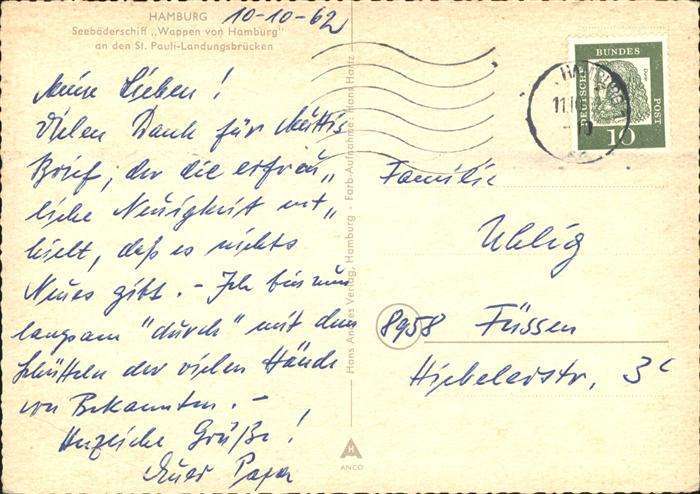 HAMBURG
Seebäderschiff „Wappen von Hamburg"
an den St. Pauli-Landungsbrücken
10-10-62
Meine Lieben!
Vielen Dank für Muttis
Brief, der die erfreu„
liche Neuigkeit ent„
hielt, daß es nichts
Neues gibt. - Ich bin nun
langsam "durch" mit dem
Schütteln der vielen Hände
von Bekannten. -
Herzliche Grüße!
Euer Papa
Hans Andres Verlag, Hamburg · Farb-Aufnahme: Hans Hartz
ANCO
DEUTSCHE
BUNDES
POST
10
HAMBURG
Familie
Uhlig
8958 Füssen
Hiebelerstr. 3c